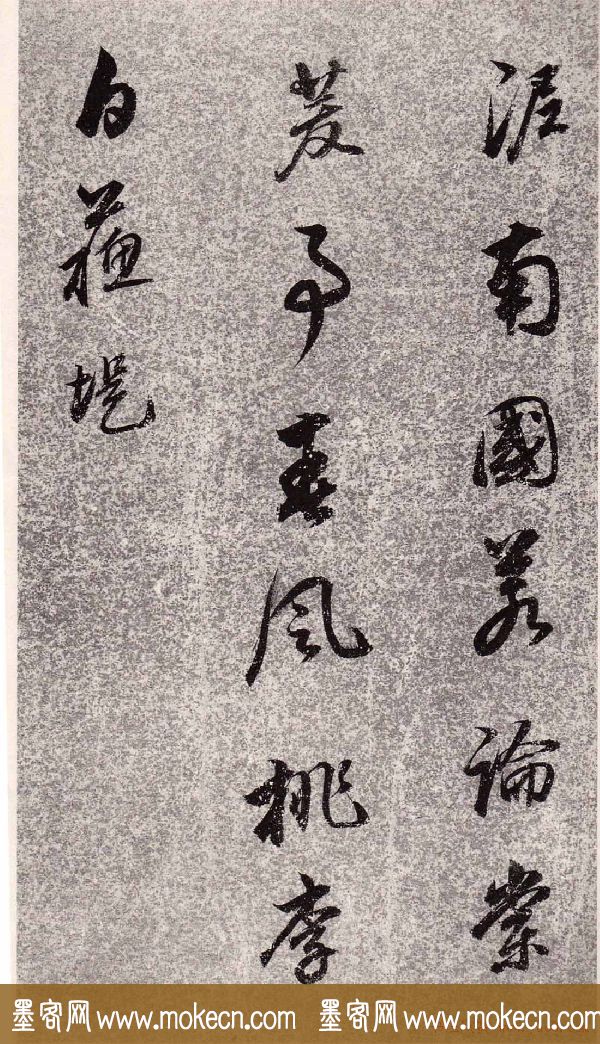 南國若論棠
茇事春風桃李
白蘇堤
墨客网 www.mokecn.com 墨客网 www.mokecn.com